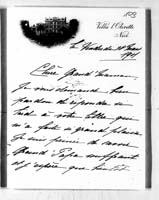 Villa l'Olivette
Nice
Chère Grand'Maman,
Je vous demande bien
pardon de répondre si
tard à votre lettre qui
m'a fait si grand plaisir.
Je suis peinée de savoir
Grand Papa souffrant
et j'espère que bientôt